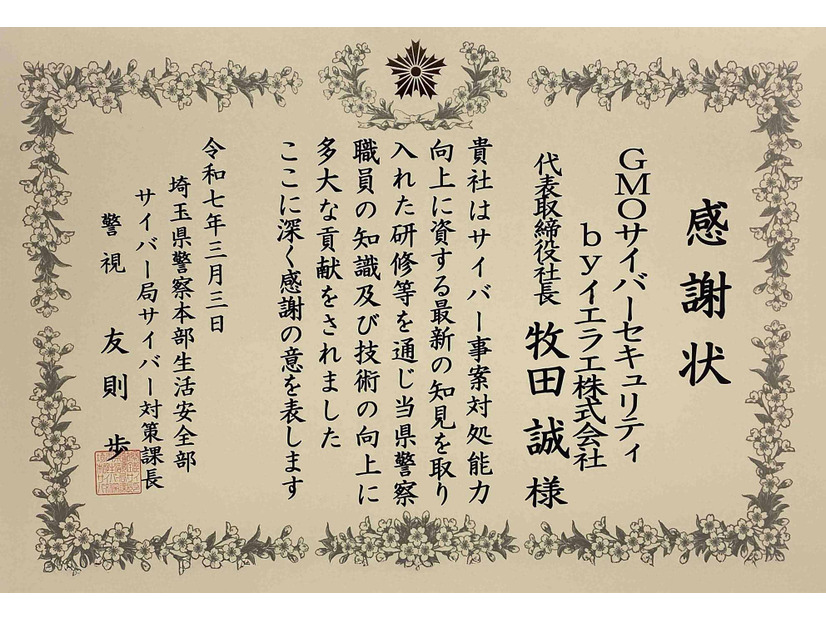 感謝状
GMOサイバーセキュリティ
byイエラエ株式会社
代表取締役社長 牧田誠様
貴社はサイバー事案対処能力
向上に資する最新の知見を取り
入れた研修等を通じ当県警察
職員の知識及び技術の向上に
多大な貢献をされました
ここに深く感謝の意を表します
令和七年三月三日
埼玉県警察本部生活安全部
サイバー局サイバー対策課長
警視 友則歩